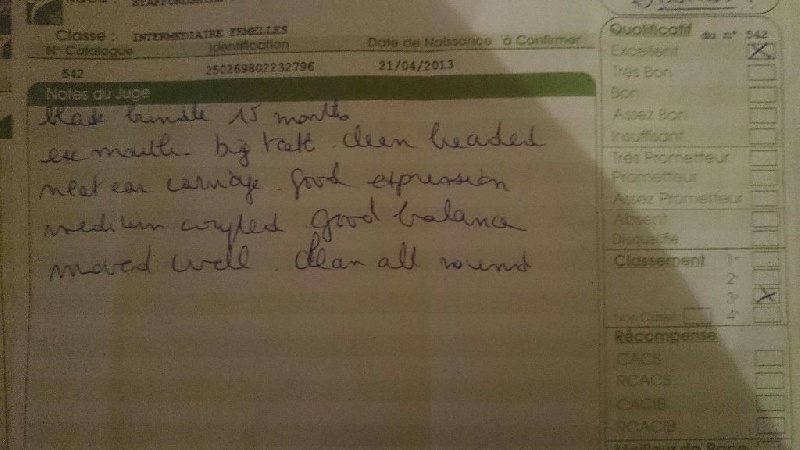 Classe : INTERMEDIAIRE FEMELLES
N° Catalogue Identification Date de Naissance à Confirmer
542 250269802232796 21/04/2013
Notes du Juge
Black brindle 15 months
exc mouth. big teeth. clean headed
neat ear carriage. good expression
medium coupled good balance
moved well. clean all round
Qualificatif du n° 542
Excellent
Très Bon
Bon
Assez Bon
Insuffisant
Très Prometteur
Prometteur
Assez Prometteur
Absent
Disqualifié
Classement 1°
2°
3°
Non Classé 4°
Récompense
CACS
RCACS
CACIB
RCACIB
Meilleur de Race